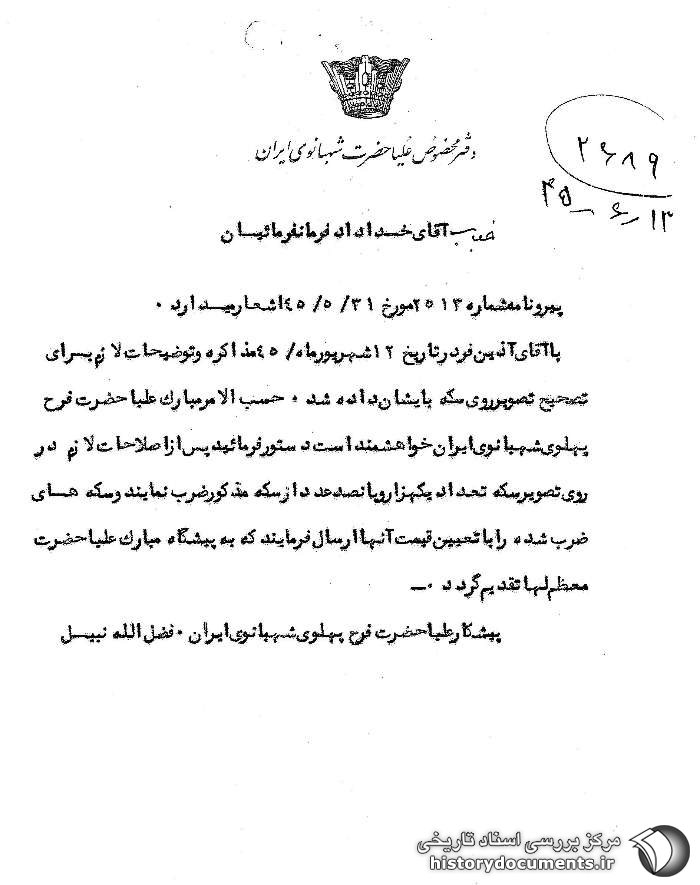 دفتر مخصوص علیاحضرت شهبانوی ایران
۲۶۸۹
۴۵-۶-۱۳
جناب آقای خداداد فرمانفرمائیان
پیرو نامه شماره ۲۵۱۳ مورخ ۳۱/ ۵/ ۴۵ اشعار میدارد ۰
با آقای آذین فر در تاریخ ۱۲ شهریور ماه/ ۴۵ مذاکره و توضیحات لازم برای
تصحیح تصویر روی سکه بایشان داده شد ۰ حسب الامر مبارک علیاحضرت فرح
پهلوی شهبانوی ایران خواهشمند است دستور فرمائید پس از اصلاحات لازم در
روی تصویر سکه تعداد یکهزار و پانصد عدد از سکه مذکور ضرب نمایند و سکه های
ضرب شده را با تعیین قیمت آنها ارسال فرمایند که به پیشگاه مبارک علیاحضرت
معظم لها تقدیم گردد ۰ــ
پیشکار علیاحضرت فرح پهلوی شهبانوی ایران ۰ فضل الله نبیل
مرکز بررسی اسناد تاریخی
historydocuments.ir